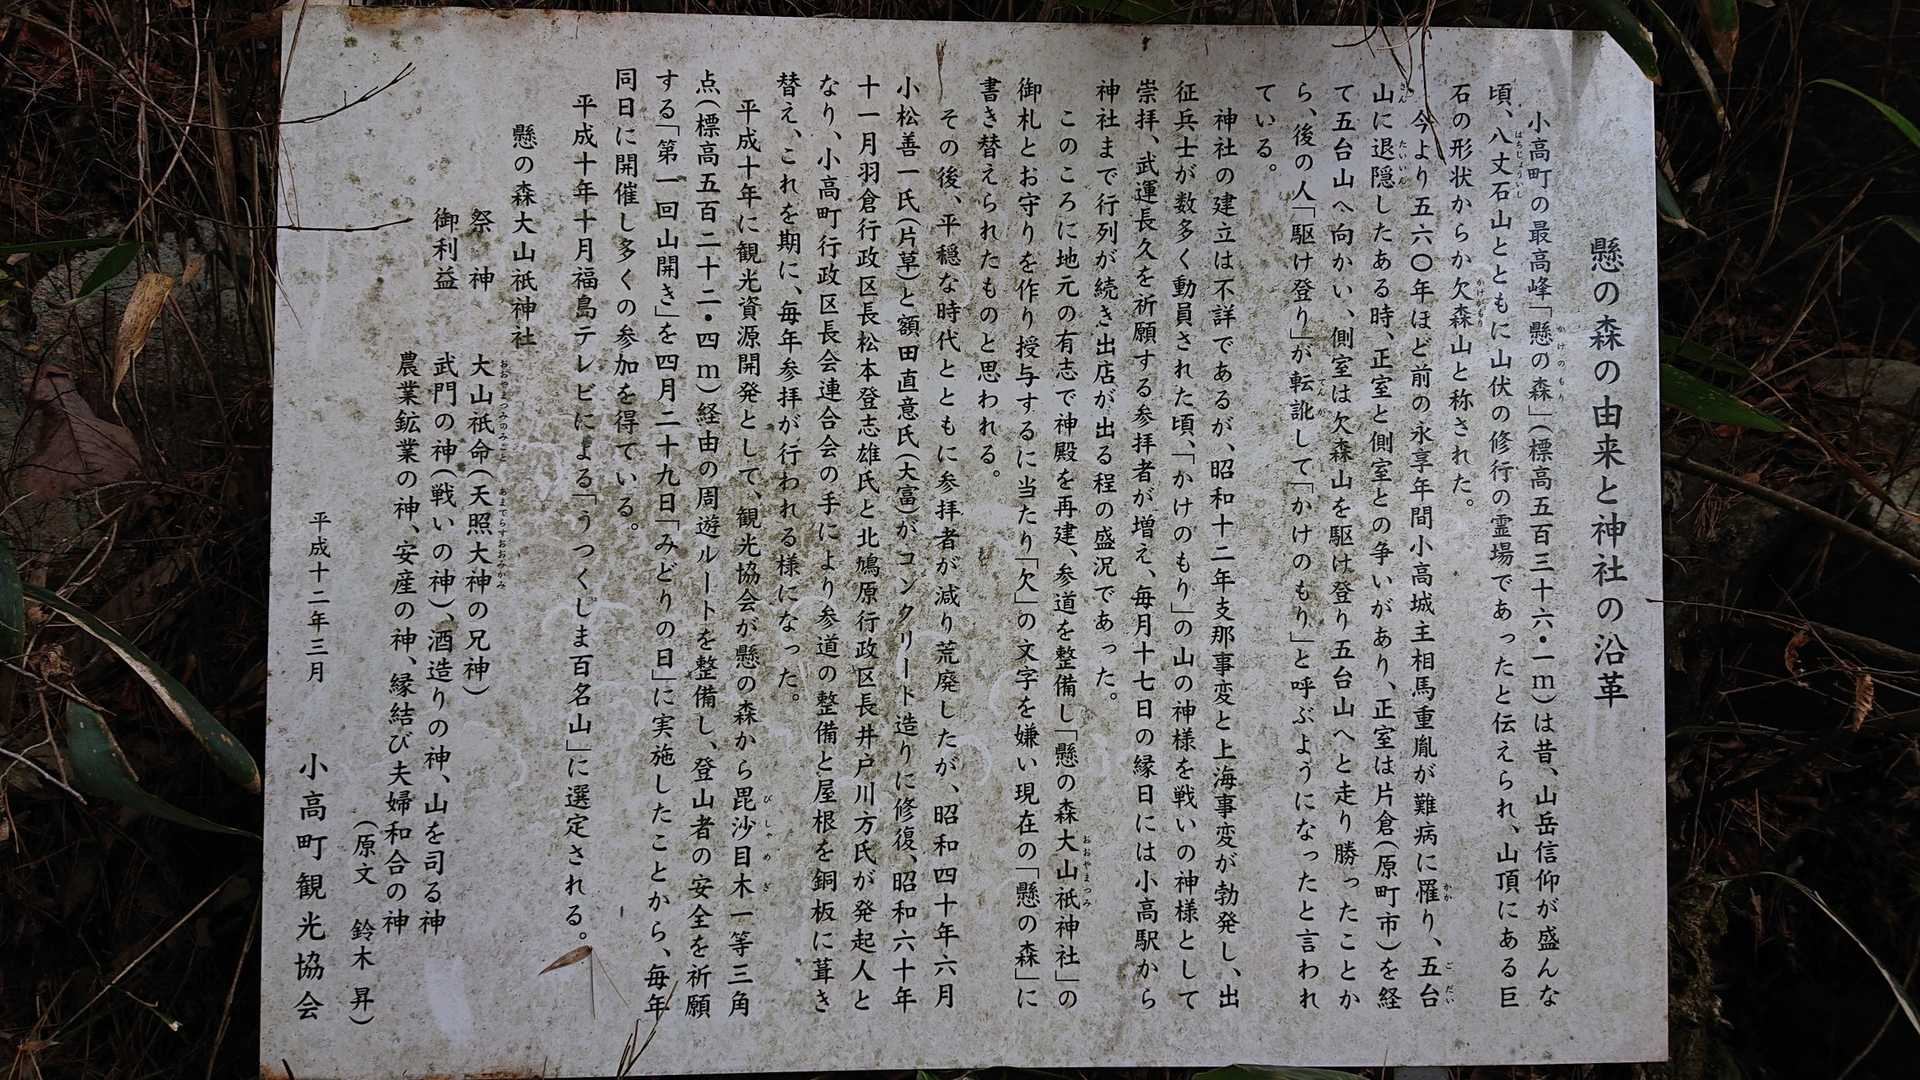 懸の森の由来と神社の沿革
小高町の最高峰「懸の森」(標高五百三十六・一m)は昔、山岳信仰が盛んな
頃、八丈石山とともに山伏の修行の霊場であったと伝えられ、山頂にある巨
石の形状からか欠森山と称された。
今より五六〇年ほど前の永享年間小高城主相馬重胤が難病に罹り、五台
山に退隠したある時、正室と側室との争いがあり、正室は片倉(原町市)を経
て五台山へ向かい、側室は欠森山を駆け登り五台山へと走り勝ったことか
ら、後の人「駆け登り」が転訛して「かけのもり」と呼ぶようになったと言われ
ている。
神社の建立は不詳であるが、昭和十二年支那事変と上海事変が勃発し、出
征兵士が数多く動員された頃、「かけのもり」の山の神様を戦いの神様として
崇拝、武運長久を祈願する参拝者が増え、毎月十七日の縁日には小高駅から
神社まで行列が続き出店が出る程の盛況であった。
このころに地元の有志で神殿を再建、参道を整備し「懸の森大山祇神社」の
御札とお守りを作り授与するに当たり「欠」の文字を嫌い現在の「懸の森」に
書き替えられたものと思われる。
その後、平穏な時代とともに参拝者が減り荒廃したが、昭和四十年六月
小松善一氏(片草)と額田直意氏(大富)がコンクリート造りに修復、昭和六十年
十一月羽倉行政区長松本登志雄氏と北鳩原行政区長井戸川方氏が発起人と
なり、小高町行政区長会連合会の手により参道の整備と屋根を銅板に葺き
替え、これを期に、毎年参拝が行われる様になった。
平成十年に観光資源開発として、観光協会が懸の森から毘沙目木一等三角
点(標高五百二十二・四m)経由の周遊ルートを整備し、登山者の安全を祈願
する「第一回山開き」を四月二十九日「みどりの日」に実施したことから、毎年
同日に開催し多くの参加を得ている。
平成十年十月福島テレビによる「うつくしま百名山」に選定される。
懸の森大山祇神社
祭　神　大山祇命(天照大神の兄神)
御利益　武門の神(戦いの神)、酒造りの神、山を司る神
農業鉱業の神、安産の神、縁結び夫婦和合の神
(原文　鈴木　昇)
平成十二年三月　小高町観光協会